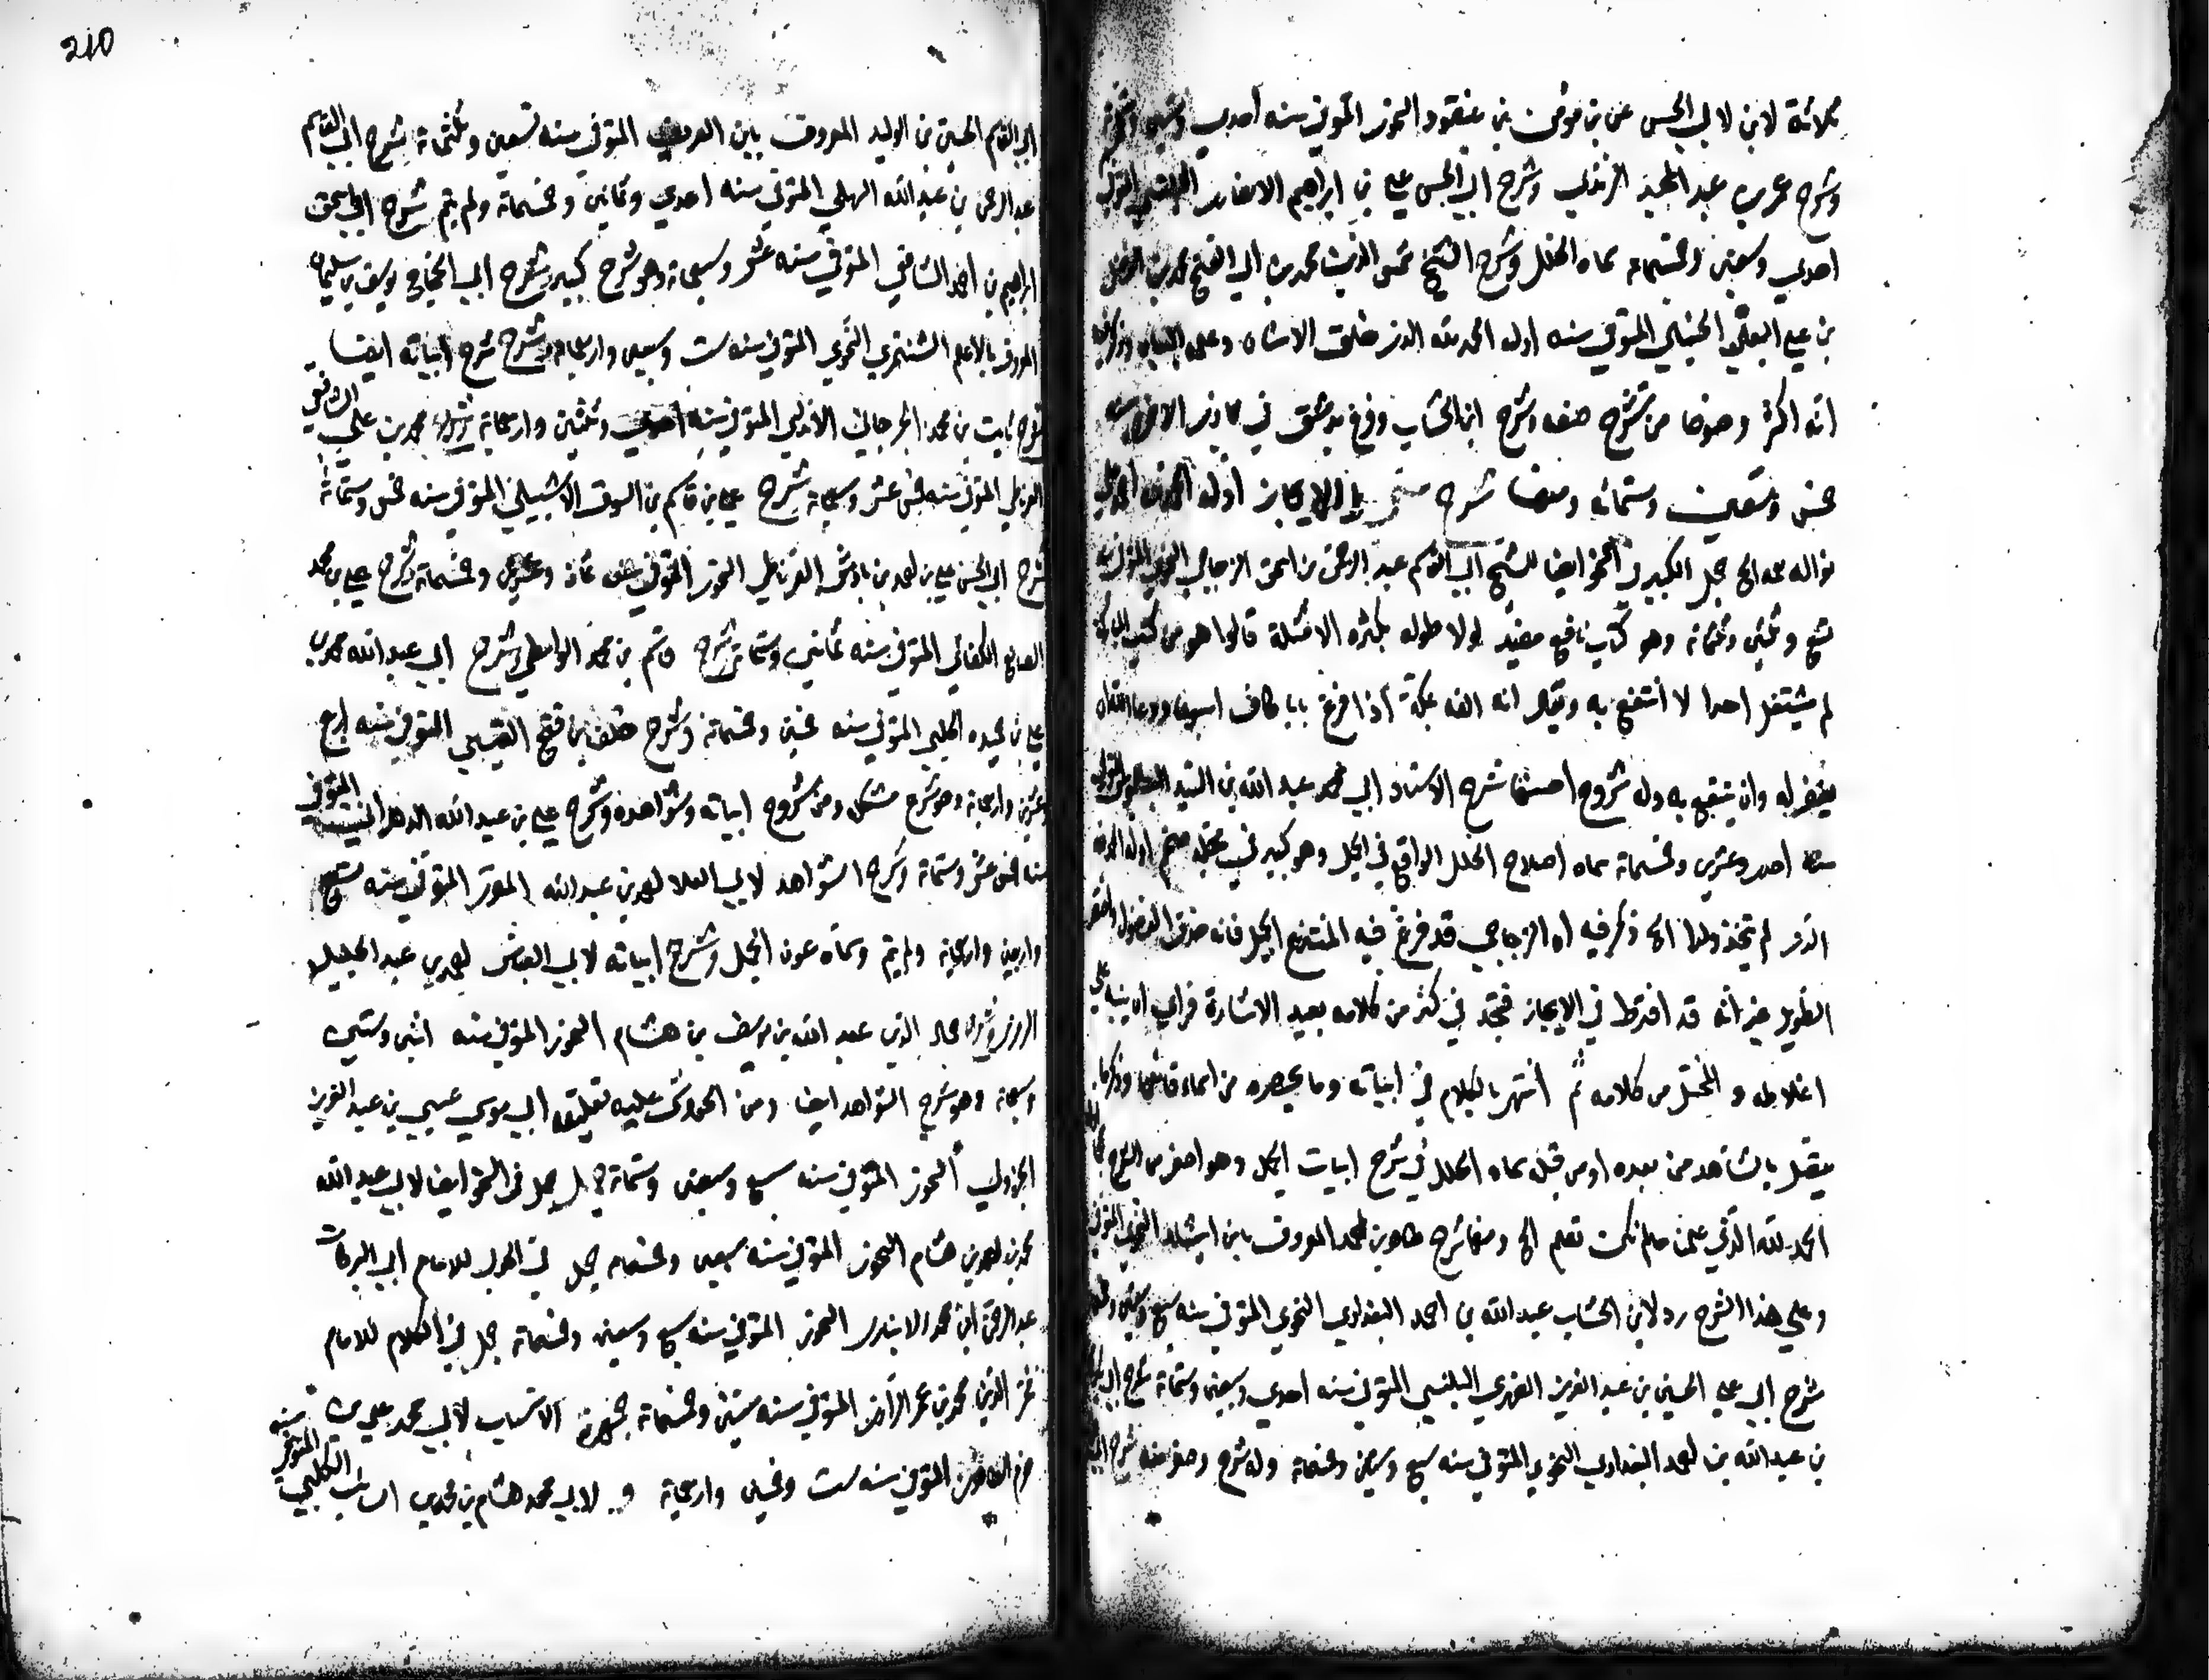 ثلاثة لابن لابي الحسن علي بن مؤمن بن عصفور النحوي المتوفي سنه
وشرح عمر بن عبد المجيد الرندي وشرح ابي الحسن علي بن ابراهيم الانصاري المتوفي
احدي وسبعين وخمسمائة سماه الحلل وشرح الشيخ شمس الدين محمد بن ابي الفتح محمد بن الفضل
بن علي البعلي الحنبلي المتوفي سنه اوله الحمد لله الذي خلق الانسان وعلمه البيان وذكر فيه
انه اكثره وضوحا من شرح وشرح ابن الخشاب وفرغ بدمشق في
خمس وتسعين وستمائه ومنها شرح الايجاز اوله
نواله جمل الكبير في النحو ايضا للشيخ ابي القاسم عبد الرحمن بن اسحق الزجاجي النحوي المتوفي سنه
تسع وثلثين وثلثمائة وهو كتاب نافع مفيد لولا طوله بكثره الامثلة قالوا هو من كتب المباركة
لم يشتغل احدا لا انتفع به وقيل انه الفه بمكة اذا فرغ بابا طاف اسبوعا ودعا الله ان
يغفر له وان ينتفع به وله شروح احسنها شرح الاستاد ابي محمد عبد الله بن السيد البطليوسي المتوفي
سنة احدي وعشرين وخمسمائة سماه اصلاح الخلل الواقع في الجمل وهو كبير في مجلد ضخم اوله الحمد لله
الذي لم يتخذ ولدا الخ ذكر فيه ان الزجاجي قد فرغ فيه المنتزع الجمل فانه حذف الفضول واختصر
الطويل غير انه قد افرط في الايجاز فتجد في كثر من كلامه بعيد الاشارة فراي ان ينبه علي
اغلاطه والمختل من كلامه ثم انتهز بالكلام في ابياته وما يحضره من اسماء قائلها وذكر ما
يتصل بالشاهد من بعده او من قبله سماه الحلل في شرح ابيات الجمل وهو اصغر من الشرح
الحمد لله الذي علمنا ما لم نكن نعلم الخ ومنها شرح طاهر بن احمد المعروف بابن ابشاد النحوي المتوفي
وعلي هذا الشرح رد لابن الخشاب عبد الله بن احمد البغدادي النحوي المتوفي سنه سبع وستين وخمسمائة
شرح ابي علي الحسين بن عبد العزيز الفهري البلنسي المتوفي سنه احدي وسبعين وستمائة شرح ابي
بن عبد الله بن احمد البغدادي النحوي المتوفي سنه سبع وستين وخمسمائة وله شرح وصغر منه شرح
210
ابي القاسم الحسين بن الوليد المعروف بابن العريف المتوفي سنه تسعين وثلثمائة شرح ابي القاسم
عبد الرحمن بن عبد الله السهيلي المتوفي سنه احدي وثمانين وخمسمائة ولم يتم شرح ابي اسحق
ابراهيم بن احمد الشافعي المتوفي سنه عشر وسبعمائة وهو شرح كبير وشرح ابي الحجاج يوسف بن سليمان
المعروف بالاعلم الشنتمري النحوي المتوفي سنه ست وسبعين واربعمائة وشرح شرح ابياته ايضا
شرح ثابت بن محمد الجرجاني الاندلسي المتوفي سنه احدي وثلثين واربعمائة شرح محمد بن علي الشافعي
الغرناطي المتوفي سنه خمس عشر وسبعمائة شرح علي بن قاسم بن الدقاق الاشبيلي المتوفي سنه خمس وستمائة
شرح ابي الحسن علي بن احمد بن باذش الغرناطي النحوي المتوفي سنه ثمان وعشرين وخمسمائة شرح علي بن محمد
الصائغ الكفائي المتوفي سنه ثمانين وستمائة شرح قاسم بن محمد الواسطي وشرح ابي عبد الله محمد بن
علي بن حميده الحلبي المتوفي سنه خمسين وخمسمائة وشرح خلف بن فتح القيسي المتوفي سنه اربع
وعشرين واربعمائة وهو شرح مشكل ومن شروح ابياته وشواهده وشرح علي بن عبد الله الدهراني المتوفي
سنه خمس عشر وستمائة وشرح الشواهد لابي العلا احمد بن عبد الله المعري المتوفي سنه تسع
واربعين واربعمائة ولم يتم وسماه عون الجمل وشرح ابياته لابي العباس احمد بن عبد الجليل
جمال الدين عبد الله بن يوسف بن هشام النحوي المتوفي سنه اثنين وستين
وسبعمائة وهو شرح الشواهد ايضا ومن الحواشي عليه تعليقه ابي موسي عيسي بن عبد العزيز
الجزولي النحوي المتوفي سنه سبع وسبعين وستمائة جمل في النحو ايضا لابي عبد الله
محمد بن احمد بن هشام النحوي المتوفي سنه سبعين وخمسمائة جمل في الجدل للامام ابي البركات
عبد الرحمن ابن محمد الانباري النحوي المتوفي سنه سبع وسبعين وخمسمائة جمل في الكلام للامام
فخر الدين محمد بن عمر الرازي المتوفي سنه ستين وخمسمائة جمهرة الانساب لابي محمد علي بن
حزم الظاهري المتوفي سنه ست وخمسين واربعمائة و لابي محمد هشام بن محمد بن السائب الكلبي المتوفي سنه